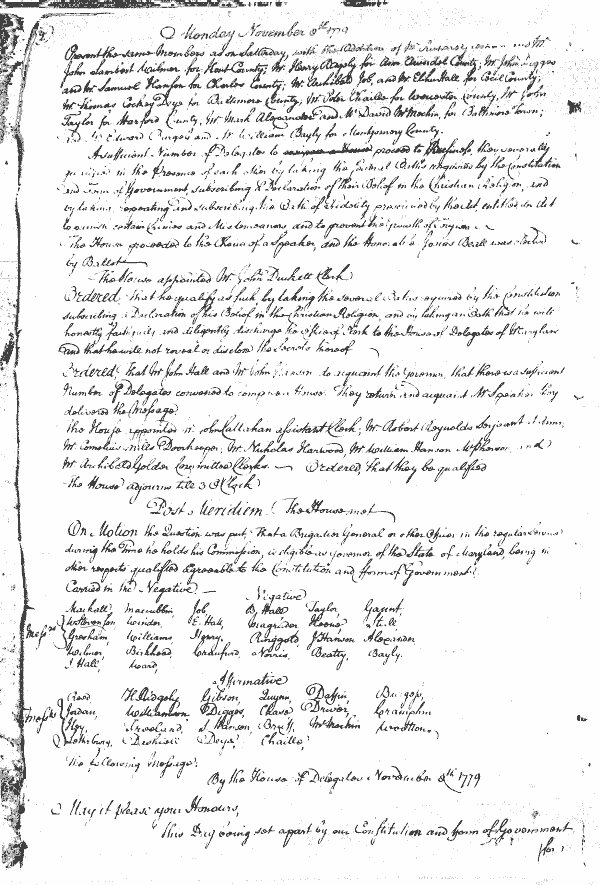 Monday November 8th 1779
Present the same Members as on Saturday, with the Addition of Mr
John Lambert Wilmer for Kent County; Mr. Henry Ridgely for Ann Arundel County; Mr. John
and Mr. Samuel Hanson for Charles County; Mr. Archibald Job, and Mr. Elihu Hall for Cecil County;
Mr. Thomas Cockey Deye for Baltimore County, Mr. Peter Chaille for Worcester County, Mr. John
Taylor for Harford County, Mr. Mark Alexander and Mr. David McMechin for Baltimore Town;
and Mr. Edward Burgess and Mr. William Bayly for Montgomery County.
A sufficient Number of Delegates to proceed to Business, they severally
qualified in the Presence of each other by taking the several Oaths required by the Constitution
and Form of Government, subscribing a Declaration of their Belief in the Christian Religion, and
by taking, repeating and subscribing the Oath of Fidelity prescribed by the Act, entitled an Act
to punish certain Crimes and Misdemeanors, and to prevent the growth of Toryism
The House proceeded to the Choice of a Speaker, and the Honorable Josias Beall was elected
by Ballot
The House appointed Mr. John Duckett Clerk
Ordered, that he qualify as such by taking the several Oaths required by the Constitution
subscribing a Declaration of his Belief in the Christian Religion, and in taking an Oath that he will
honestly faithfully and diligently discharge the office of Clerk to the House of Delegates of Maryland
and that he will not reveal or disclose the Secrets thereof
Ordered, That Mr. John Hall and Mr. John Hanson to acquaint the Governor, that there was sufficient
Number of Delegates convened to compose a House. They return and acquaint Mr Speaker they
delivered the Message.
The House appointed Mr John Callahan assistant Clerk; Mr. Robert Reynolds Serjeant at Arms,
Mr. Cornelius Mills Doorkeeper; Mr. Nicholas Harwood, Mr. William Hanson McPherson, and
Mr Archibald Golder Committee Clerks — Ordered that they be qualified
The House adjourns till 3 O Clock
Post Meridiem. The House met
On Motion the Question was put, That a Brigadier General or other Officer in the regular Service
during the Time he holds his Commission, is eligible as Governor of the State of Maryland, being in
other respects qualified agreeable to the Constitution and Form of Government?
Carried in the Negative —
Negative
Mackall Maccubbin Job B. Hall Taylor, Gaunt,
Messrs Wolstenholm Worden, E. Hall, Magruder Hoone Still
Gresham Williams Henry, Ringgold J Hanson Alexander
Wilmer, Birkhead, Crauford, Norris, Beatty, Bayly.
J Hall, Ward,
Affirmative
Reed H. Ridgely Gibson Quynn, Daffin Burgess,
Messrs Jordan, Williamson Digges, Chase Driver, Cramphin
Key, Freeland, S Hanson, Bruff, McMechin
Lethrbury, Dashiell Deye, Chaille,
The following Message:
By the House of Delegates November 8th 1779
May it please your Honours,
This Day being set apart by our Constitution and Form of Government
for